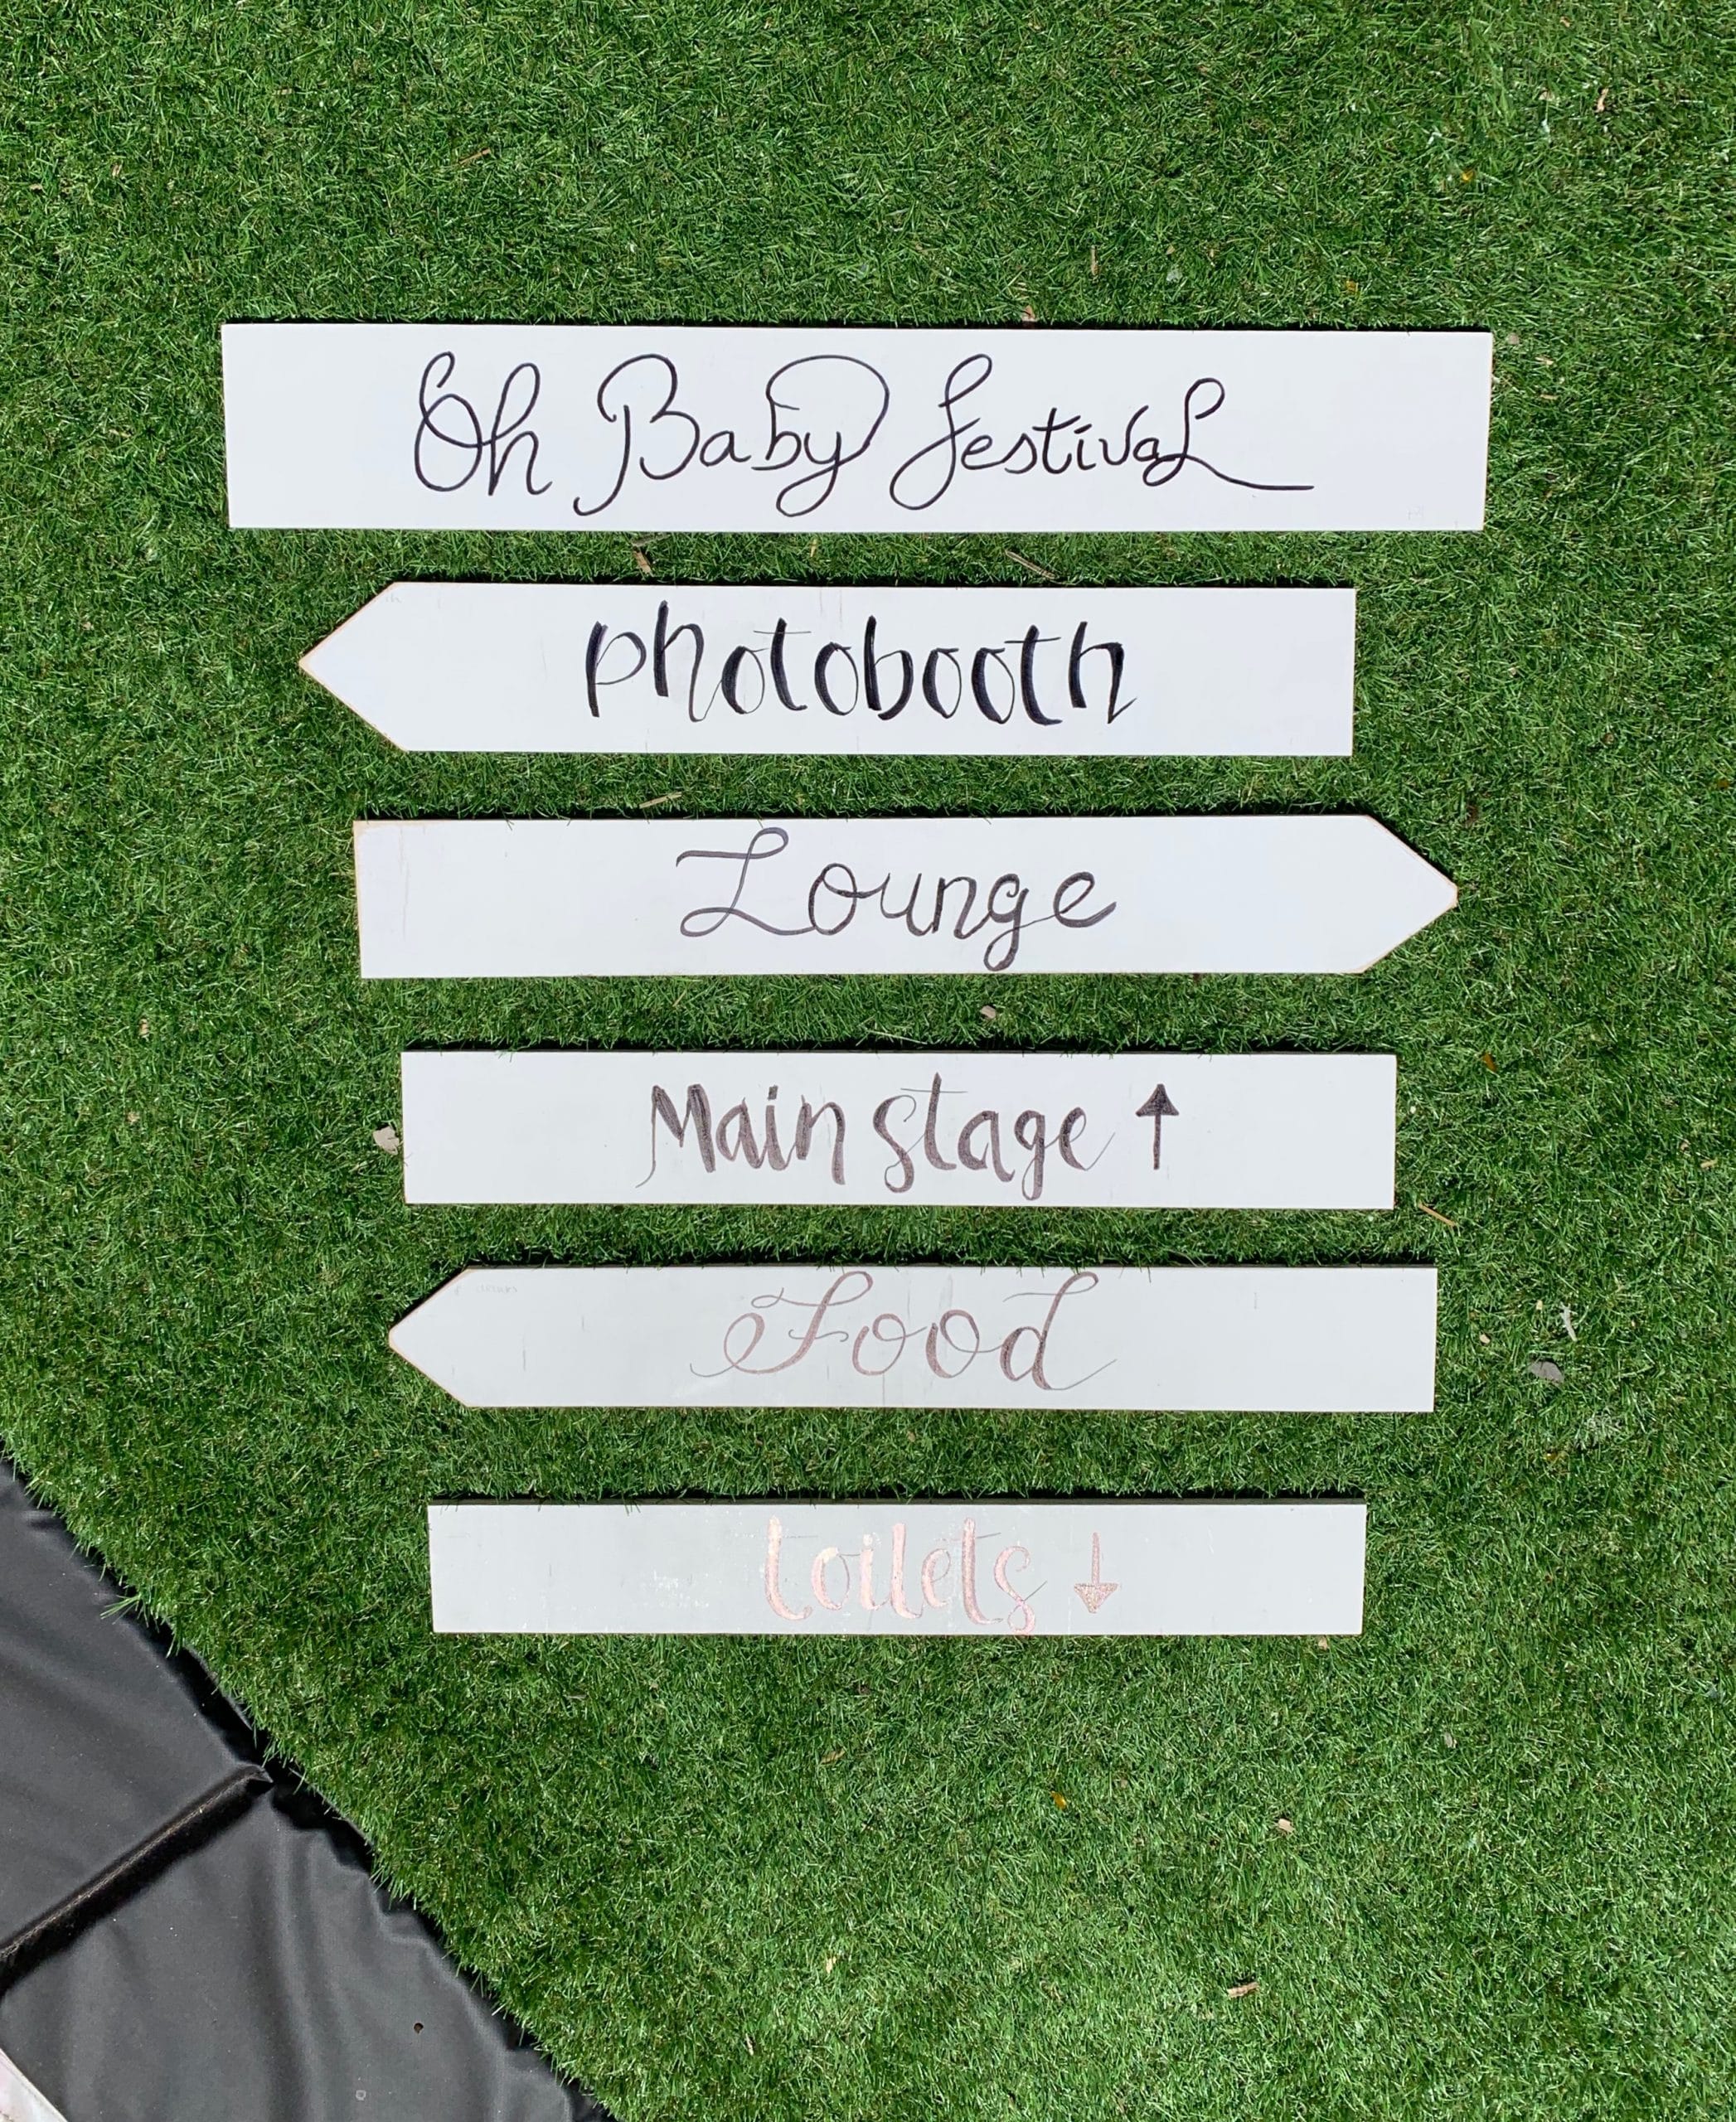 Oh Baby festival
photobooth
Lounge
Main stage ↑
Food
toilets ↓